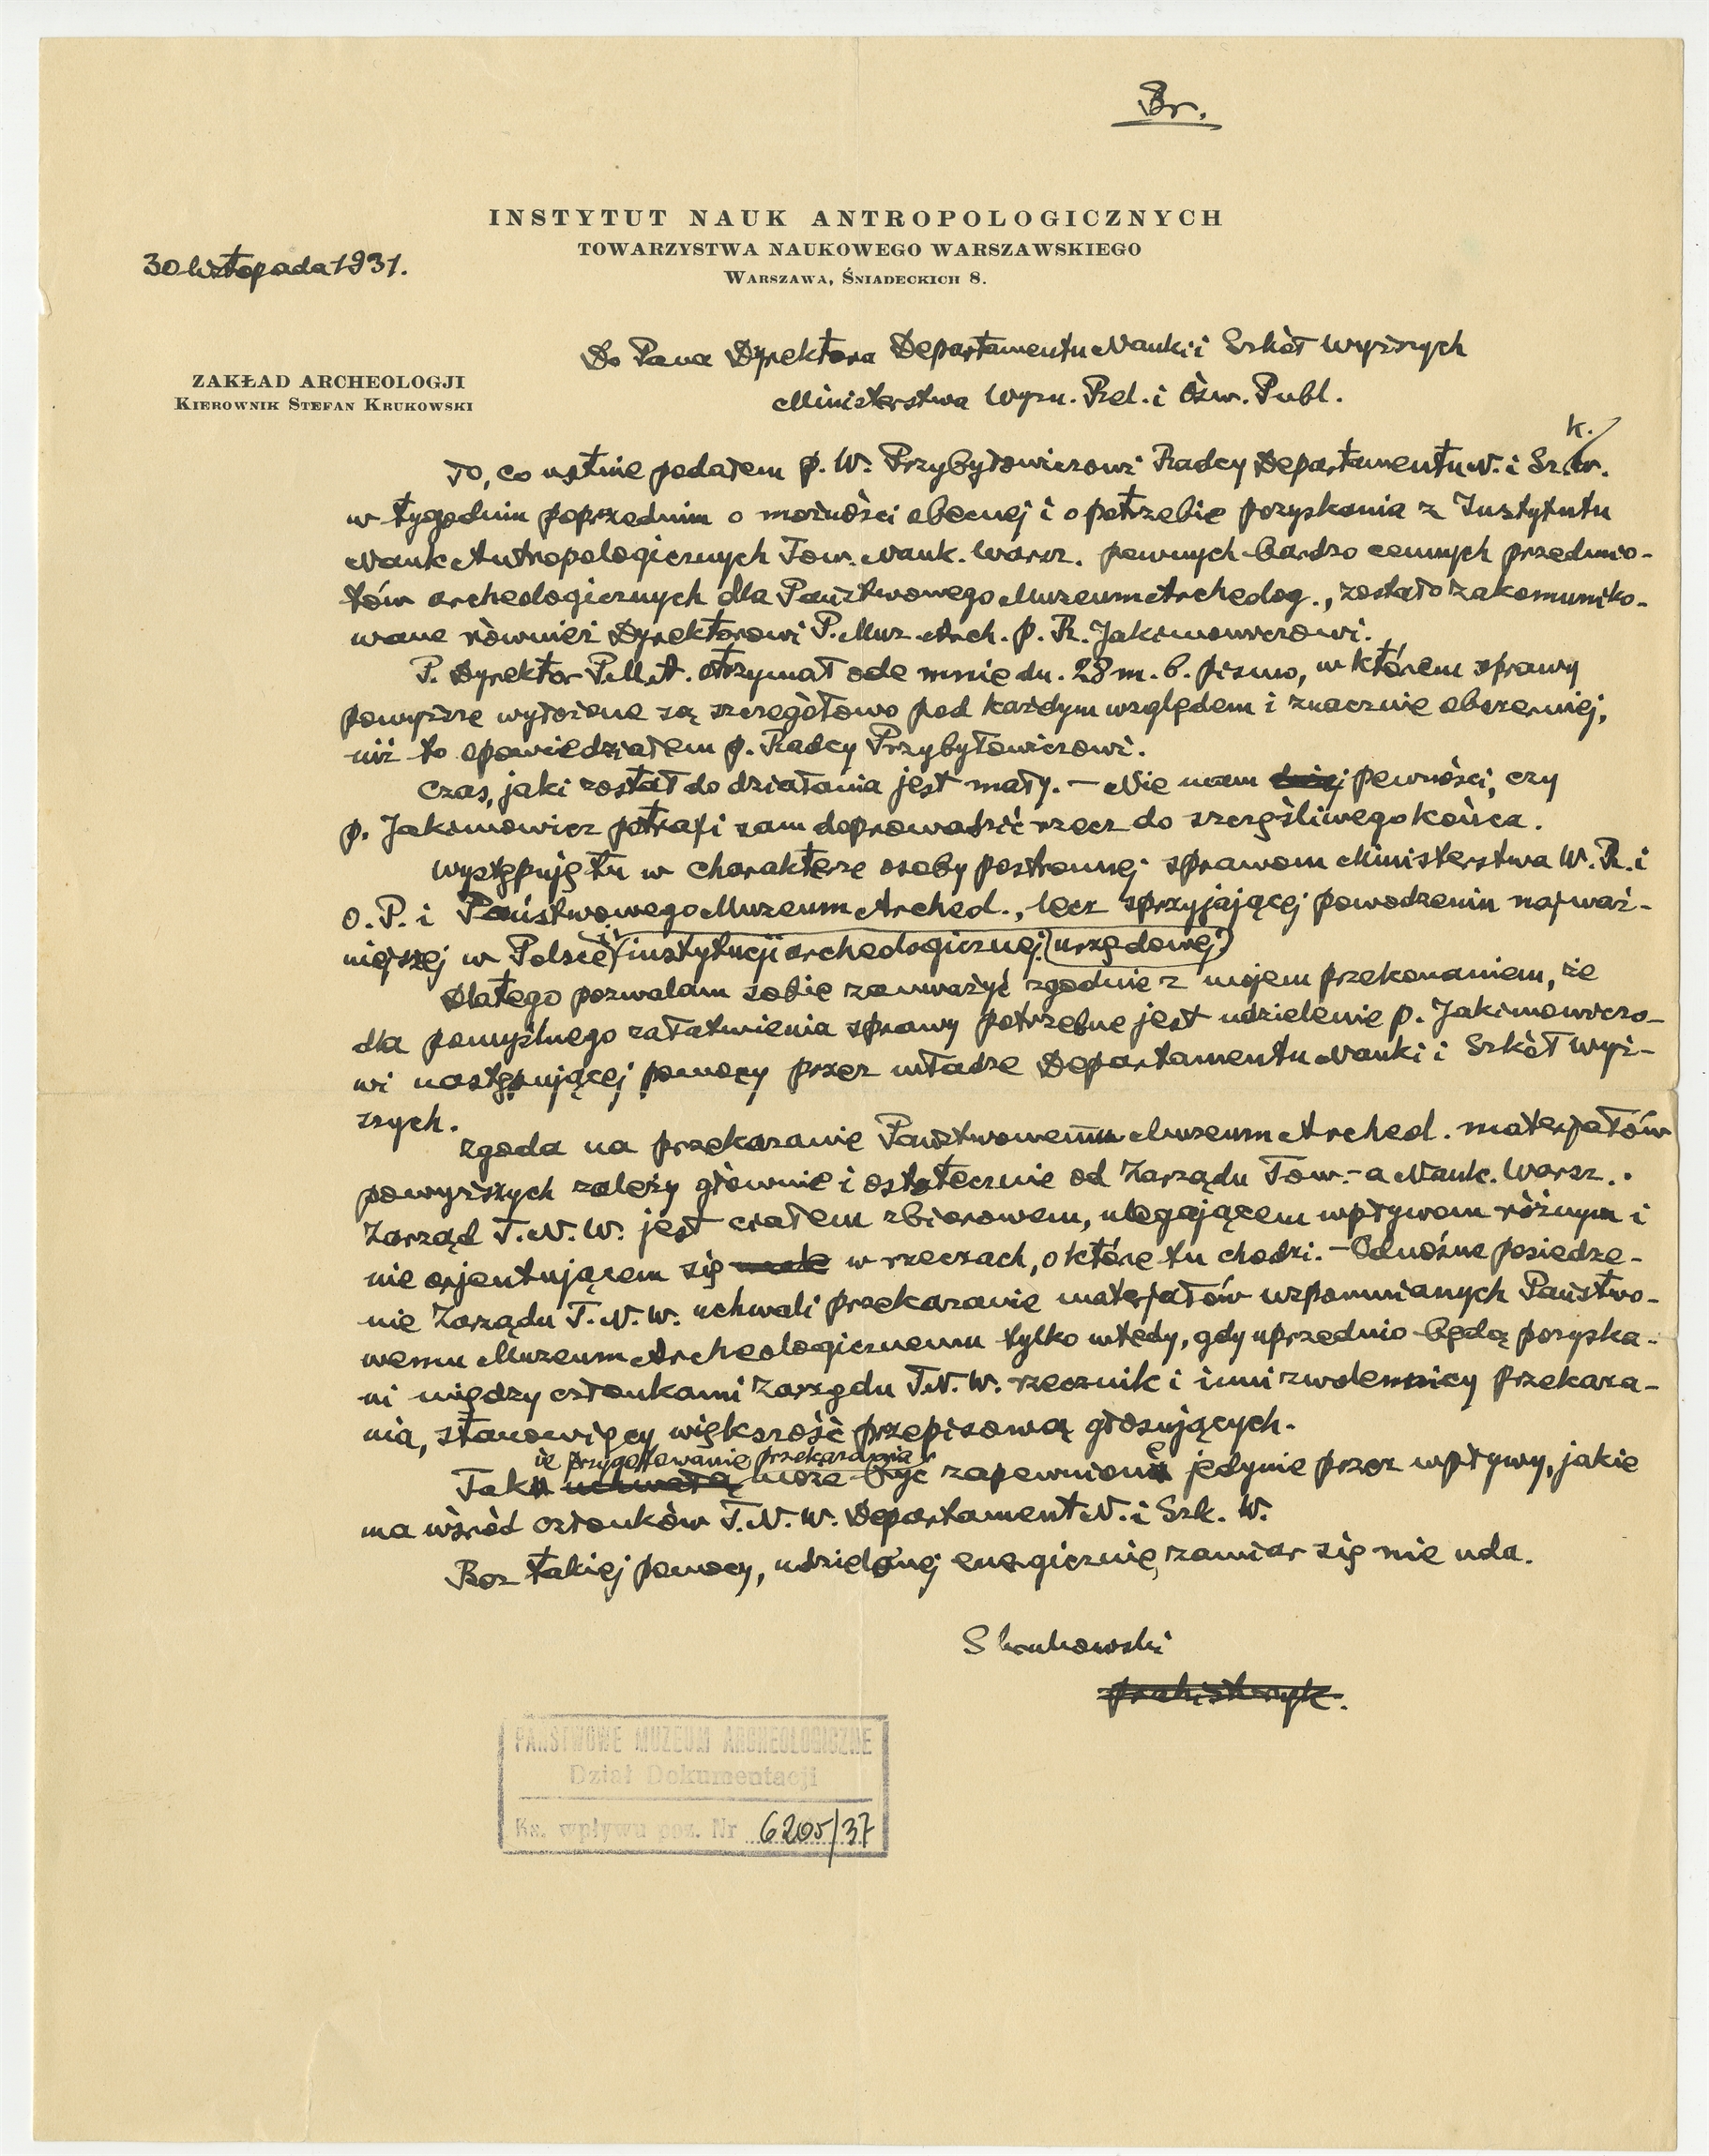 Br.
INSTYTUT NAUK ANTROPOLOGICZNYCH
TOWARZYSTWA NAUKOWEGO WARSZAWSKIEGO
WARSZAWA, ŚNIADECKICH 8.
30 listopada 1931.
ZAKŁAD ARCHEOLOGJI
KIEROWNIK STEFAN KRUKOWSKI
Do Pana Dyrektora Departamentu Nauki i Szkół Wyższych
Ministerstwa Wyzn. Rel. i Ośw. Publ.
To, co ustnie podałem p. W. Przybyłowiczowi Radcy Departamentu N. i Szk. w.
w tygodniu poprzednim o możności obecnej i o potrzebie pozyskania z Instytutu
Nauk Antropologicznych Tow. Nauk. Warsz. pewnych bardzo cennych przedmio-
tów archeologicznych dla Państwowego Muzeum Archeolog., zostało zakomuniko-
wane również Dyrektorowi P. Muz. Arch. p. R. Jakimowiczowi.
P. Dyrektor P.M.A. otrzymał ode mnie dn. 28 m. b. pismo, w którem sprawy
powyższe wyłożone są szczegółowo pod każdym względem i znacznie obszerniej,
niż to opowiedziałem p. Radcy Przybyłowiczowi.
Czas, jaki został do działania jest mały. – Nie mam pewności, czy
p. Jakimowicz potrafi sam doprowadzić rzecz do szczęśliwego końca.
Występuję tu w charakterze osoby postronnej sprawom Ministerstwa W. R. i
O. P. i Państwowego Muzeum Archeol., lecz sprzyjającej powodzeniu najważ-
niejszej w Polsce instytucji archeologicznej urzędowej.
Dlatego pozwalam sobie zauważyć zgodnie z mojem przekonaniem, że
dla pomyślnego załatwienia sprawy potrzebne jest udzielenie p. Jakimowiczo-
wi następującej pomocy przez władze Departamentu Nauki i Szkół Wyż-
szych.
Zgoda na przekazanie Państwowemu Muzeum Archeol. materjałów
powyższych zależy głównie i ostatecznie od Zarządu Tow.-a Nauk. Warsz..
Zarząd T. N. W. jest ciałem zbiorowem, ulegającem wpływom różnym i
nie orjentującem się w rzeczach, o które tu chodzi. – Odnośne posiedze-
nie Zarządu T. N. W. uchwali przekazanie materjałów wspomnianych Państwo-
wemu Muzeum Archeologicznemu tylko wtedy, gdy uprzednio będą pozyska-
ni między członkami Zarządu T.N.W. rzecznik i inni zwolennicy przekaza-
nia, stanowiący większość przepisową głosujących.
ie przygotowanie przekazania
Tak uchwałą może być zapewnione jedynie przez wpływy, jakie
ma wśród członków T. N. W. Departament N. i Szk. W.
Bez takiej pomocy, udzielonej energicznie, zamiar się nie uda.
S Krukowski
prehistoryk.
PAŃSTWOWE MUZEUM ARCHEOLOGICZNE
Dział Dokumentacji
Ks. wpływu poz. Nr 6205/37